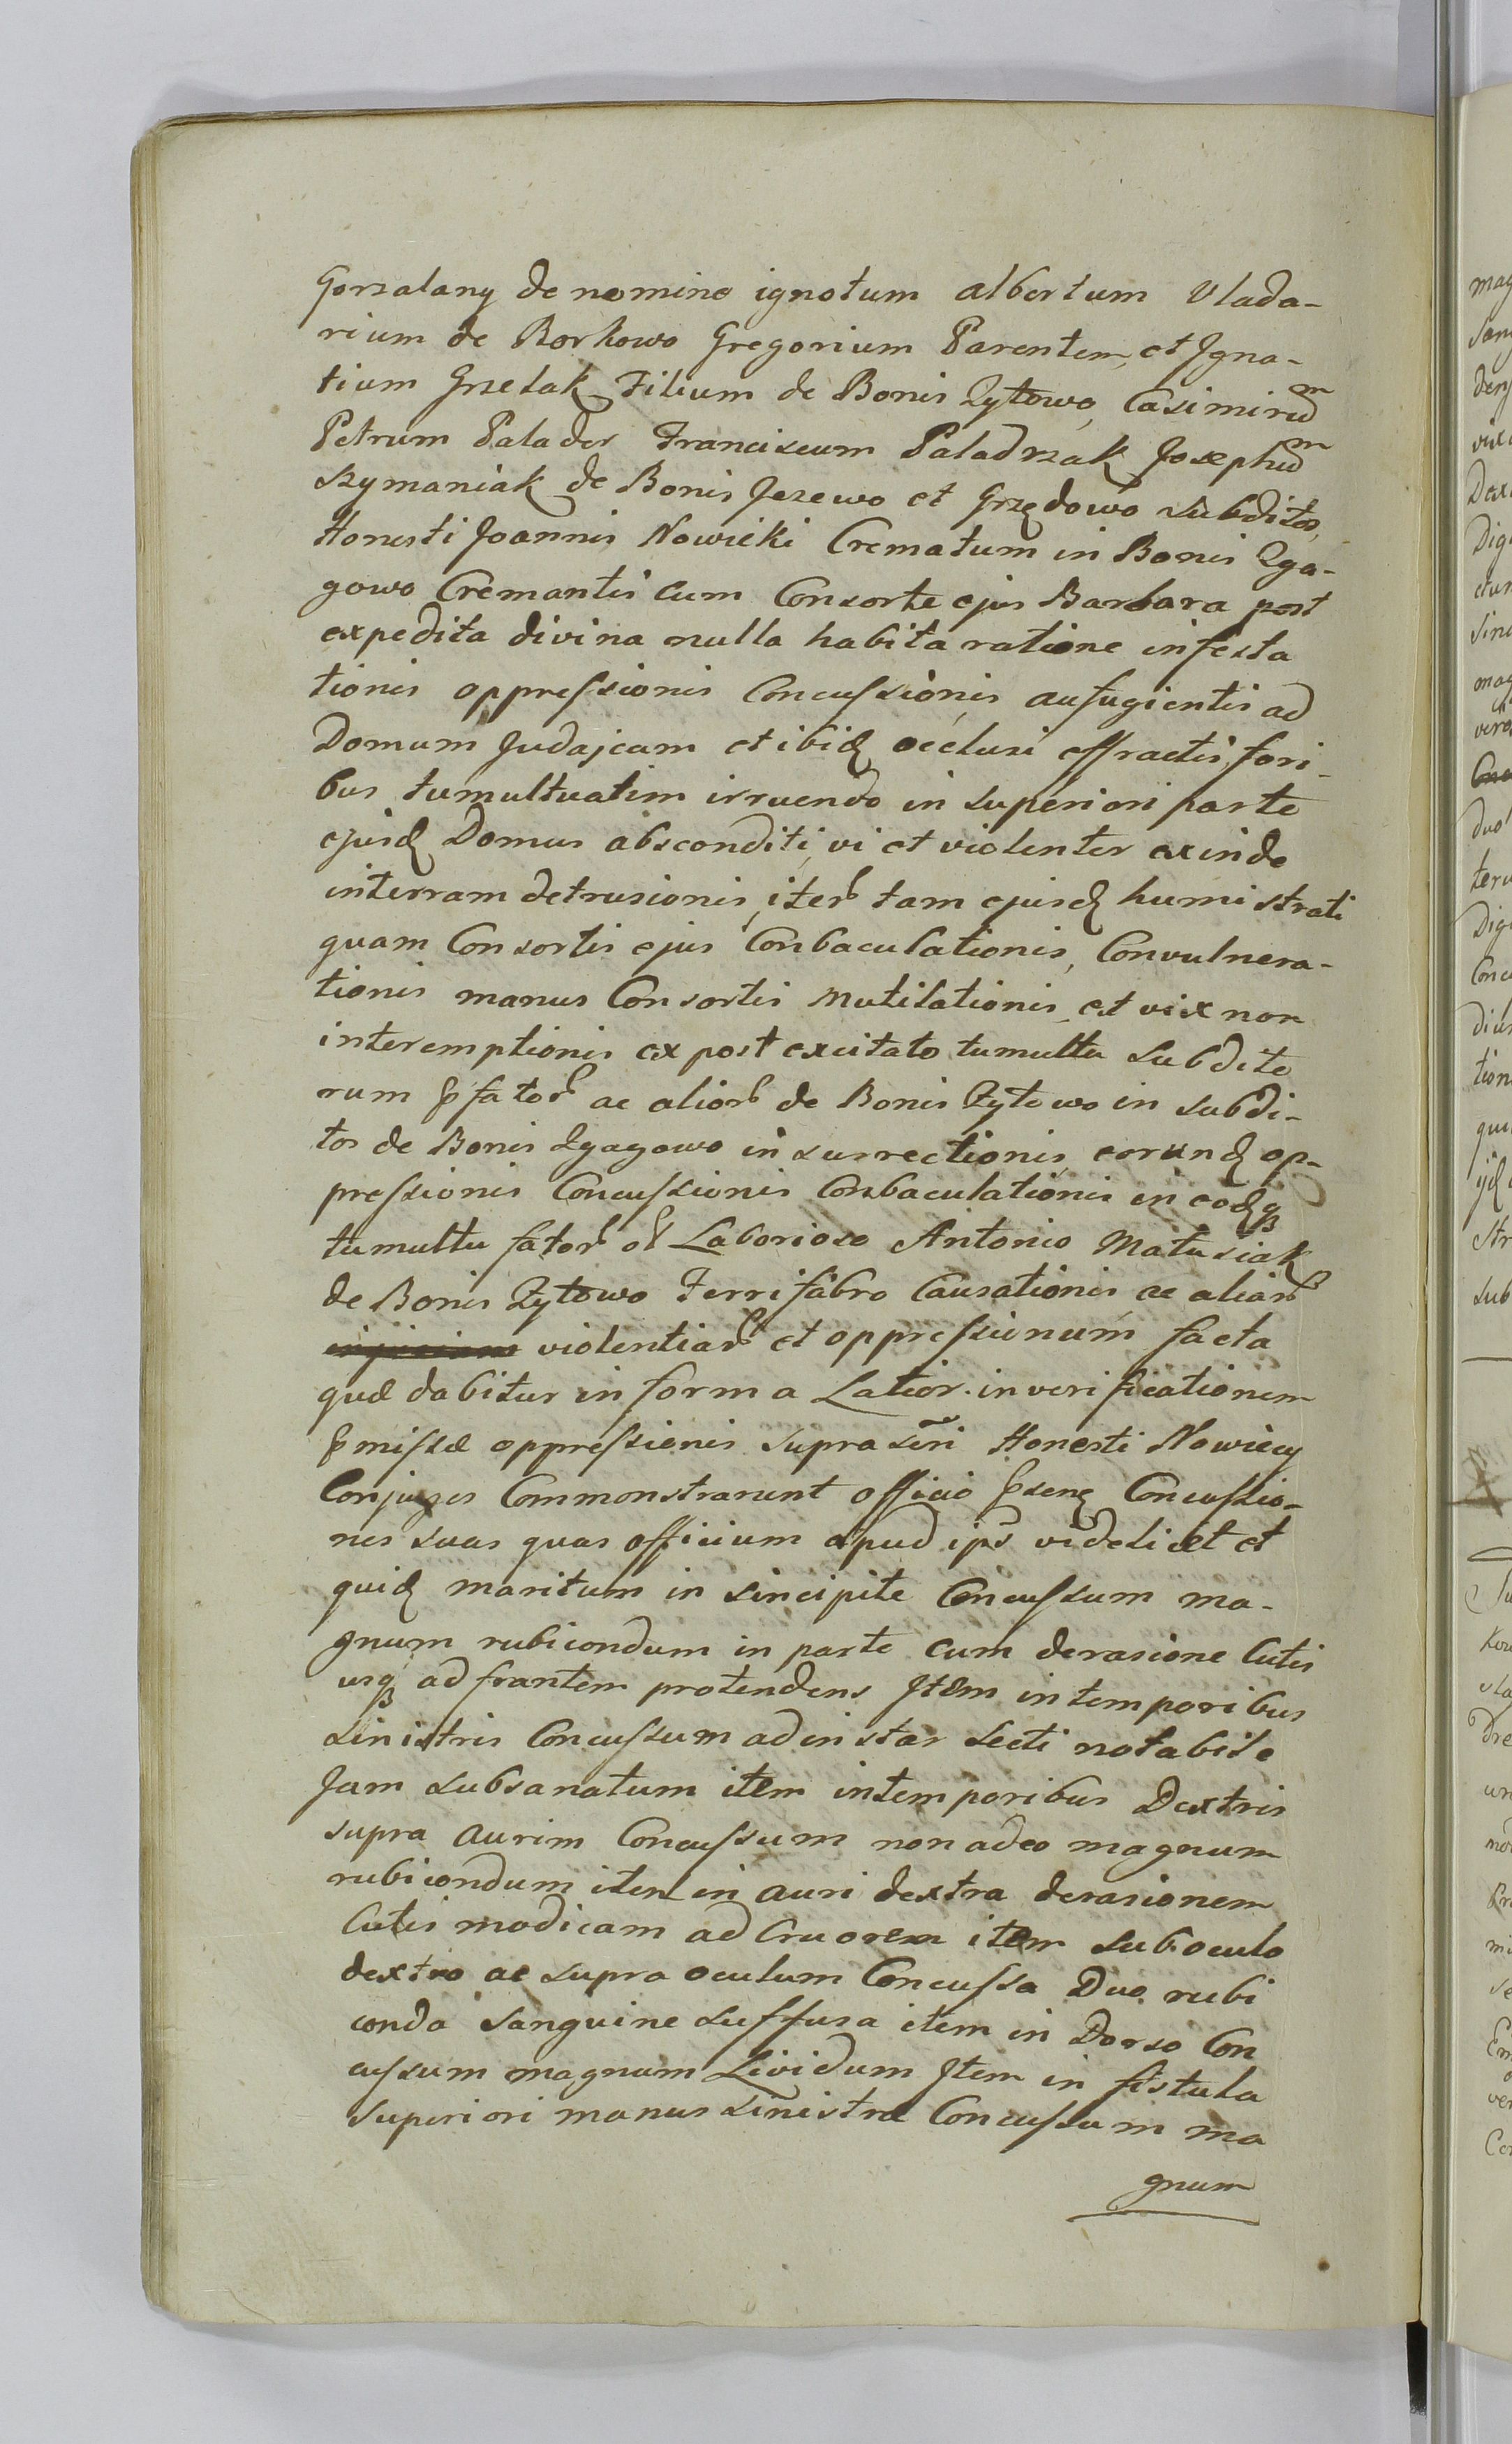 Gorzalany de nomine ignotum albertum Vlada-
rium de Borkowo Gregorium Parentem, et Igna-
tium Grzelak Filium de Bonis Zytowo, Casimirum
Petrum Palader Franciscum Paladrzak Josephum
Szymaniak de Bonis Jezewo et Grzędowo subditos,
Honesti Joannis Nowicki Crematum in Bonis Zga-
gowo Cremantis cum Consorte ejus Barbara post
expedita divina nulla habita ratione infesta
tionis oppressionis Concussionis aufugientis ad
Domum Judajcam et ibid occlusi effractis fori-
bus tumultuatim irruendo in superiori parte
ejusd Domus absconditi, vi et violenter exinde
interram detrusionis, iter tam ejusd humi strati
quam Consortis ejus Conbaculationis, Convulnera-
tionis manus Consortis mutilationis, et vix non
interemptionis ex post excitato tumultu subdito
rum pfator ac alior de Bonis Zytowo in subdi-
tos de Bonis Zgagowo insurrectionis, eorund op-
pressionis Concussionis Conbaculationis in eodq
tumultu fator et Laborioso Antonio Matusiak
de Bonis Zytowo Ferrifabro Causationis ac aliar
violentiar et oppressionum facta
quæ dabitur in forma Latior. in verificationem
pmissæ oppressionis supra scri Honesti Nowiccy
Conjuges Commonstrarunt officio psenq Concussio-
nes suas quas officium apud ips videlicet et
quid maritum in sincipite Concussum ma-
gnum rubicondum in parte cum derasione Cutis
usq ad frontem protendens Item in temporibus
sinistris Concussum ad instar Secti notabile
Jam subsanatum item in temporibus Dextris
supra aurim Concussum non adeo magnum
rubicondum item in auri dextra derasionem
Cutis modicam ad Cruorem item sub oculo
dextro ac supra oculum Concussa Duo rubi
conda sanguine suffusa item in Dorso Con
cussum magnum Lividum Item in fistula
superiori manus sinistræ Concussum ma
gnum